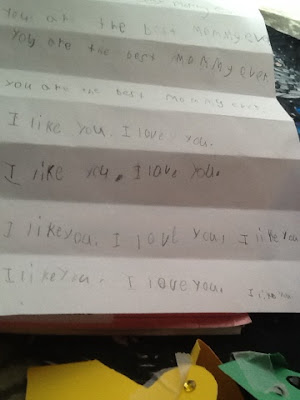 mommy
You are the best mommy ever
you are the best mommy ever
you are the best mommy ever.
I like you. I love you.
I like you. I love you.
I like you. I love you, I like you
I like you. I love you. I like you